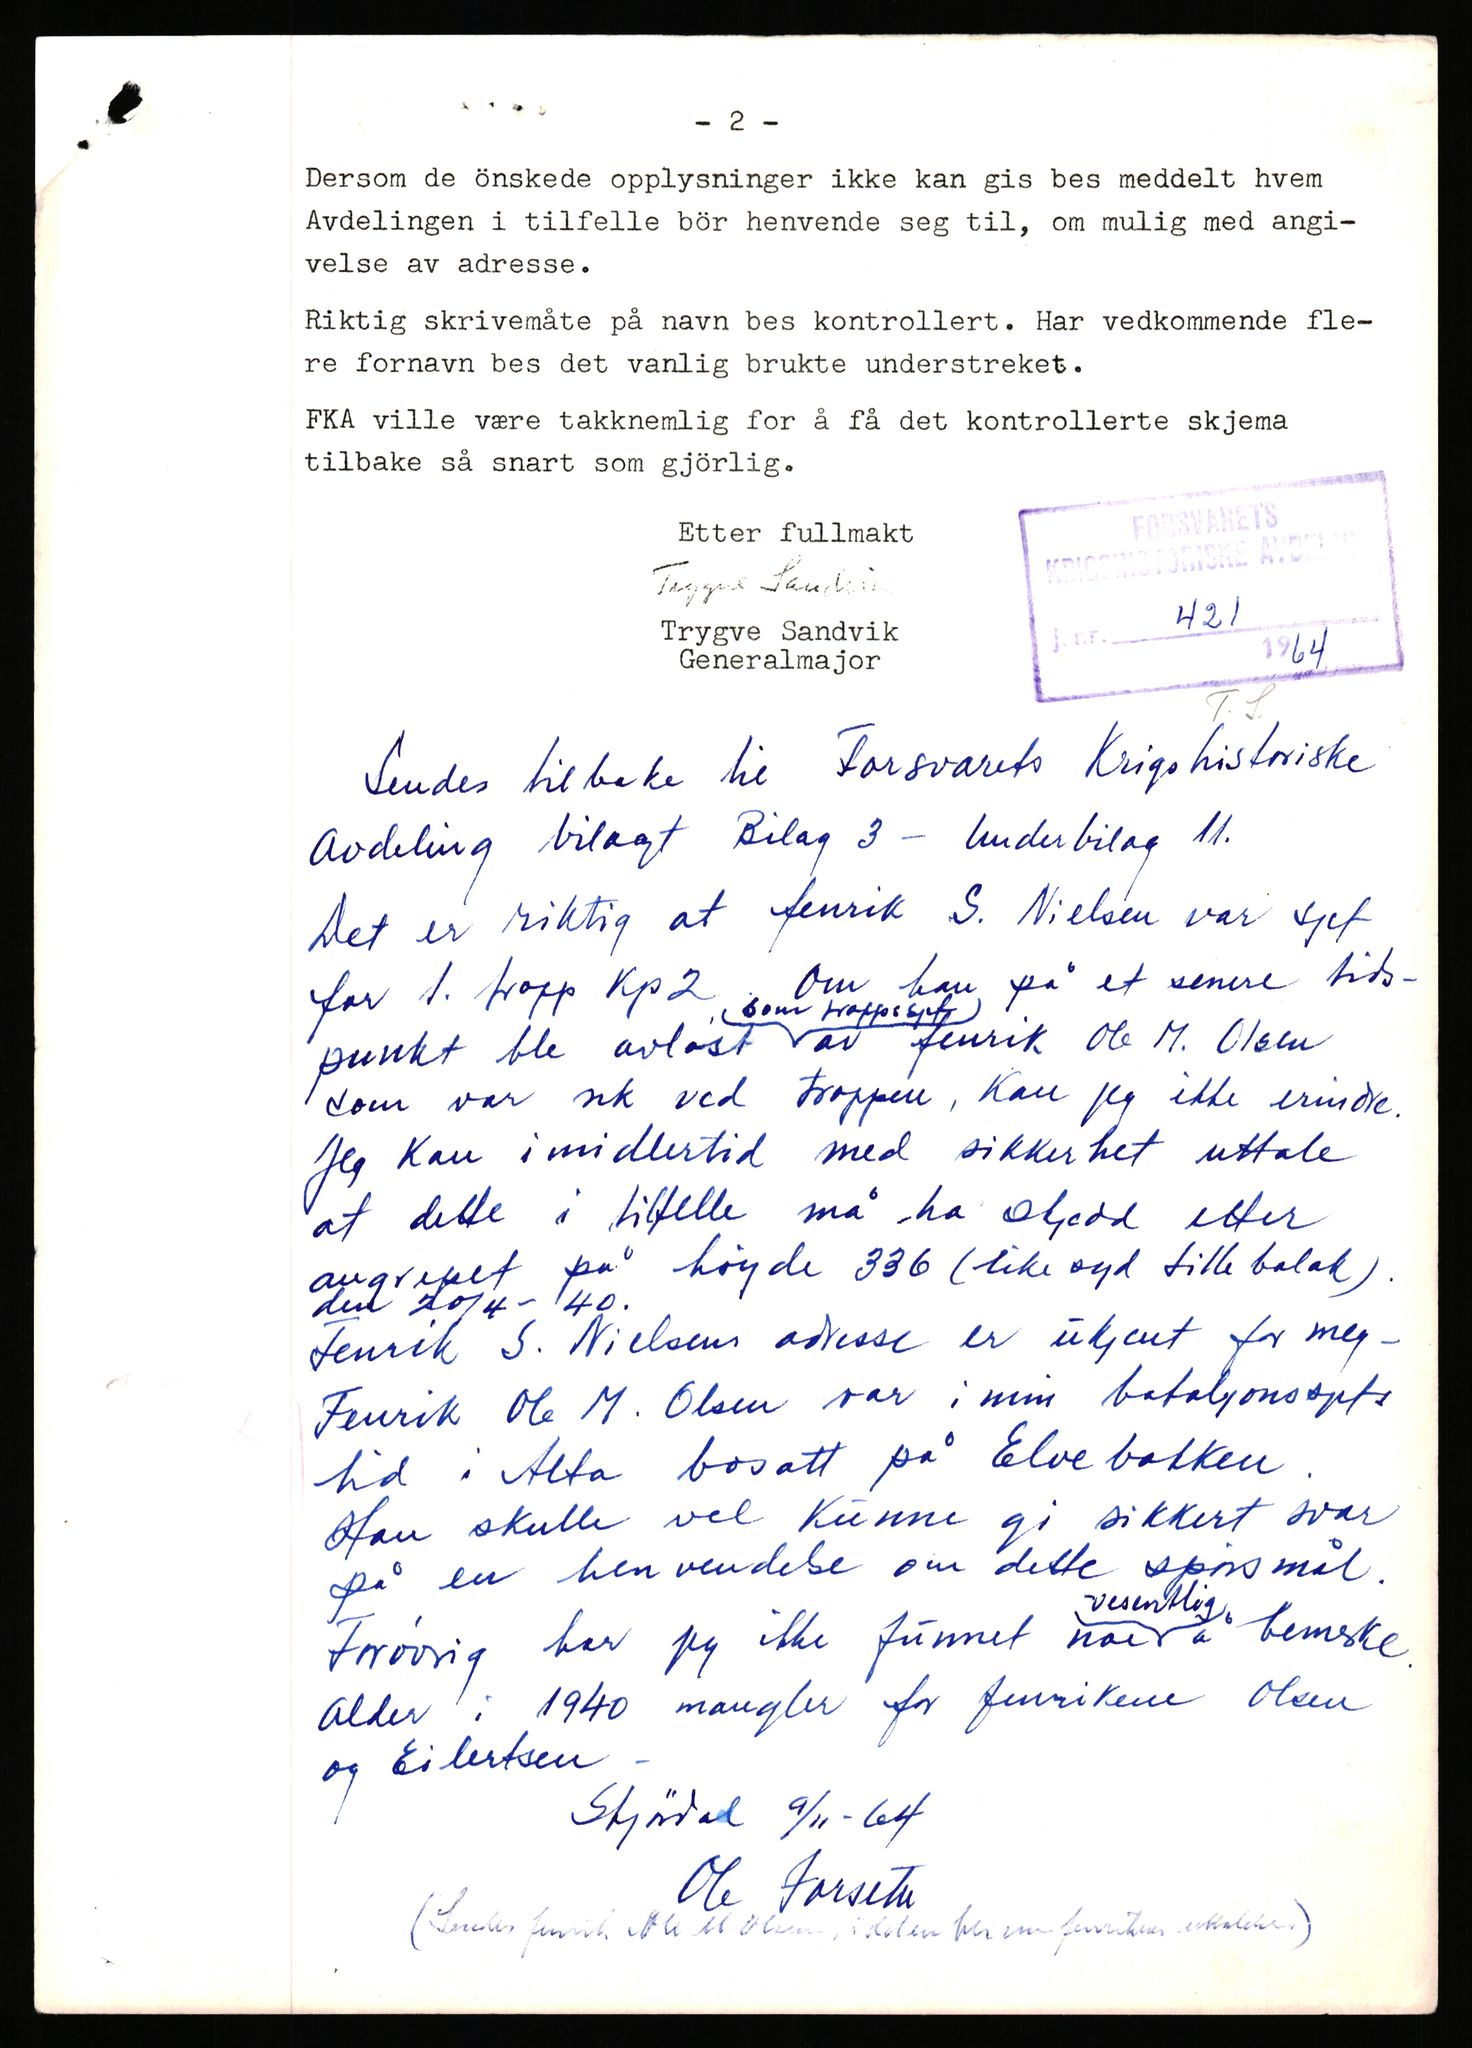 - 2 -
Dersom de önskede opplysninger ikke kan gis bes meddelt hvem
Avdelingen i tilfelle bör henvende seg til, om mulig med angi-
velse av adresse.
Riktig skrivemåte på navn bes kontrollert. Har vedkommende fle-
re fornavn bes det vanlig brukte understreket.
FKA ville være takknemlig for å få det kontrollerte skjema
tilbake så snart som gjörlig.
Etter fullmakt
Trygve Sandvik
Trygve Sandvik
Generalmajor
FORSVARETS
KRIGSHISTORISKE AVDELING
j. nr. 421
1964
T. S.
Sendes tilbake til Forsvarets Krigshistoriske
Avdeling bilagt Bilag 3 - Underbilag 11.
Det er riktig at fenrik S. Nielsen var sjef
for 1. tropp Kp 2. Om han på et senere tids-
som troppssjef
punkt ble avløst av fenrik Ole M. Olsen
som var nk ved troppen, kan jeg ikke erindre.
Jeg kan imidlertid med sikkerhet uttale
at dette i tilfelle må ha skjedd etter
angrepet på høyde 336 (like syd Lillebalak).
den 20/4-40.
Fenrik S. Nielsens adresse er ukjent for meg -
Fenrik Ole M. Olsen var i min bataljonssjefs
tid i Alta bosatt på Elvebakken.
Han skulle vel kunne gi sikkert svar
på en henvendelse om dette spörsmål.
vesentlig
Forövrig har jeg ikke funnet noe å bemerke.
Alder i 1940 mangler for fenrikene Olsen
og Eilertsen -
Stjördal 9/11-64
Ole Forseth
(Sendes fenrik Ole M Olsen, fenrikens uttalelse.)